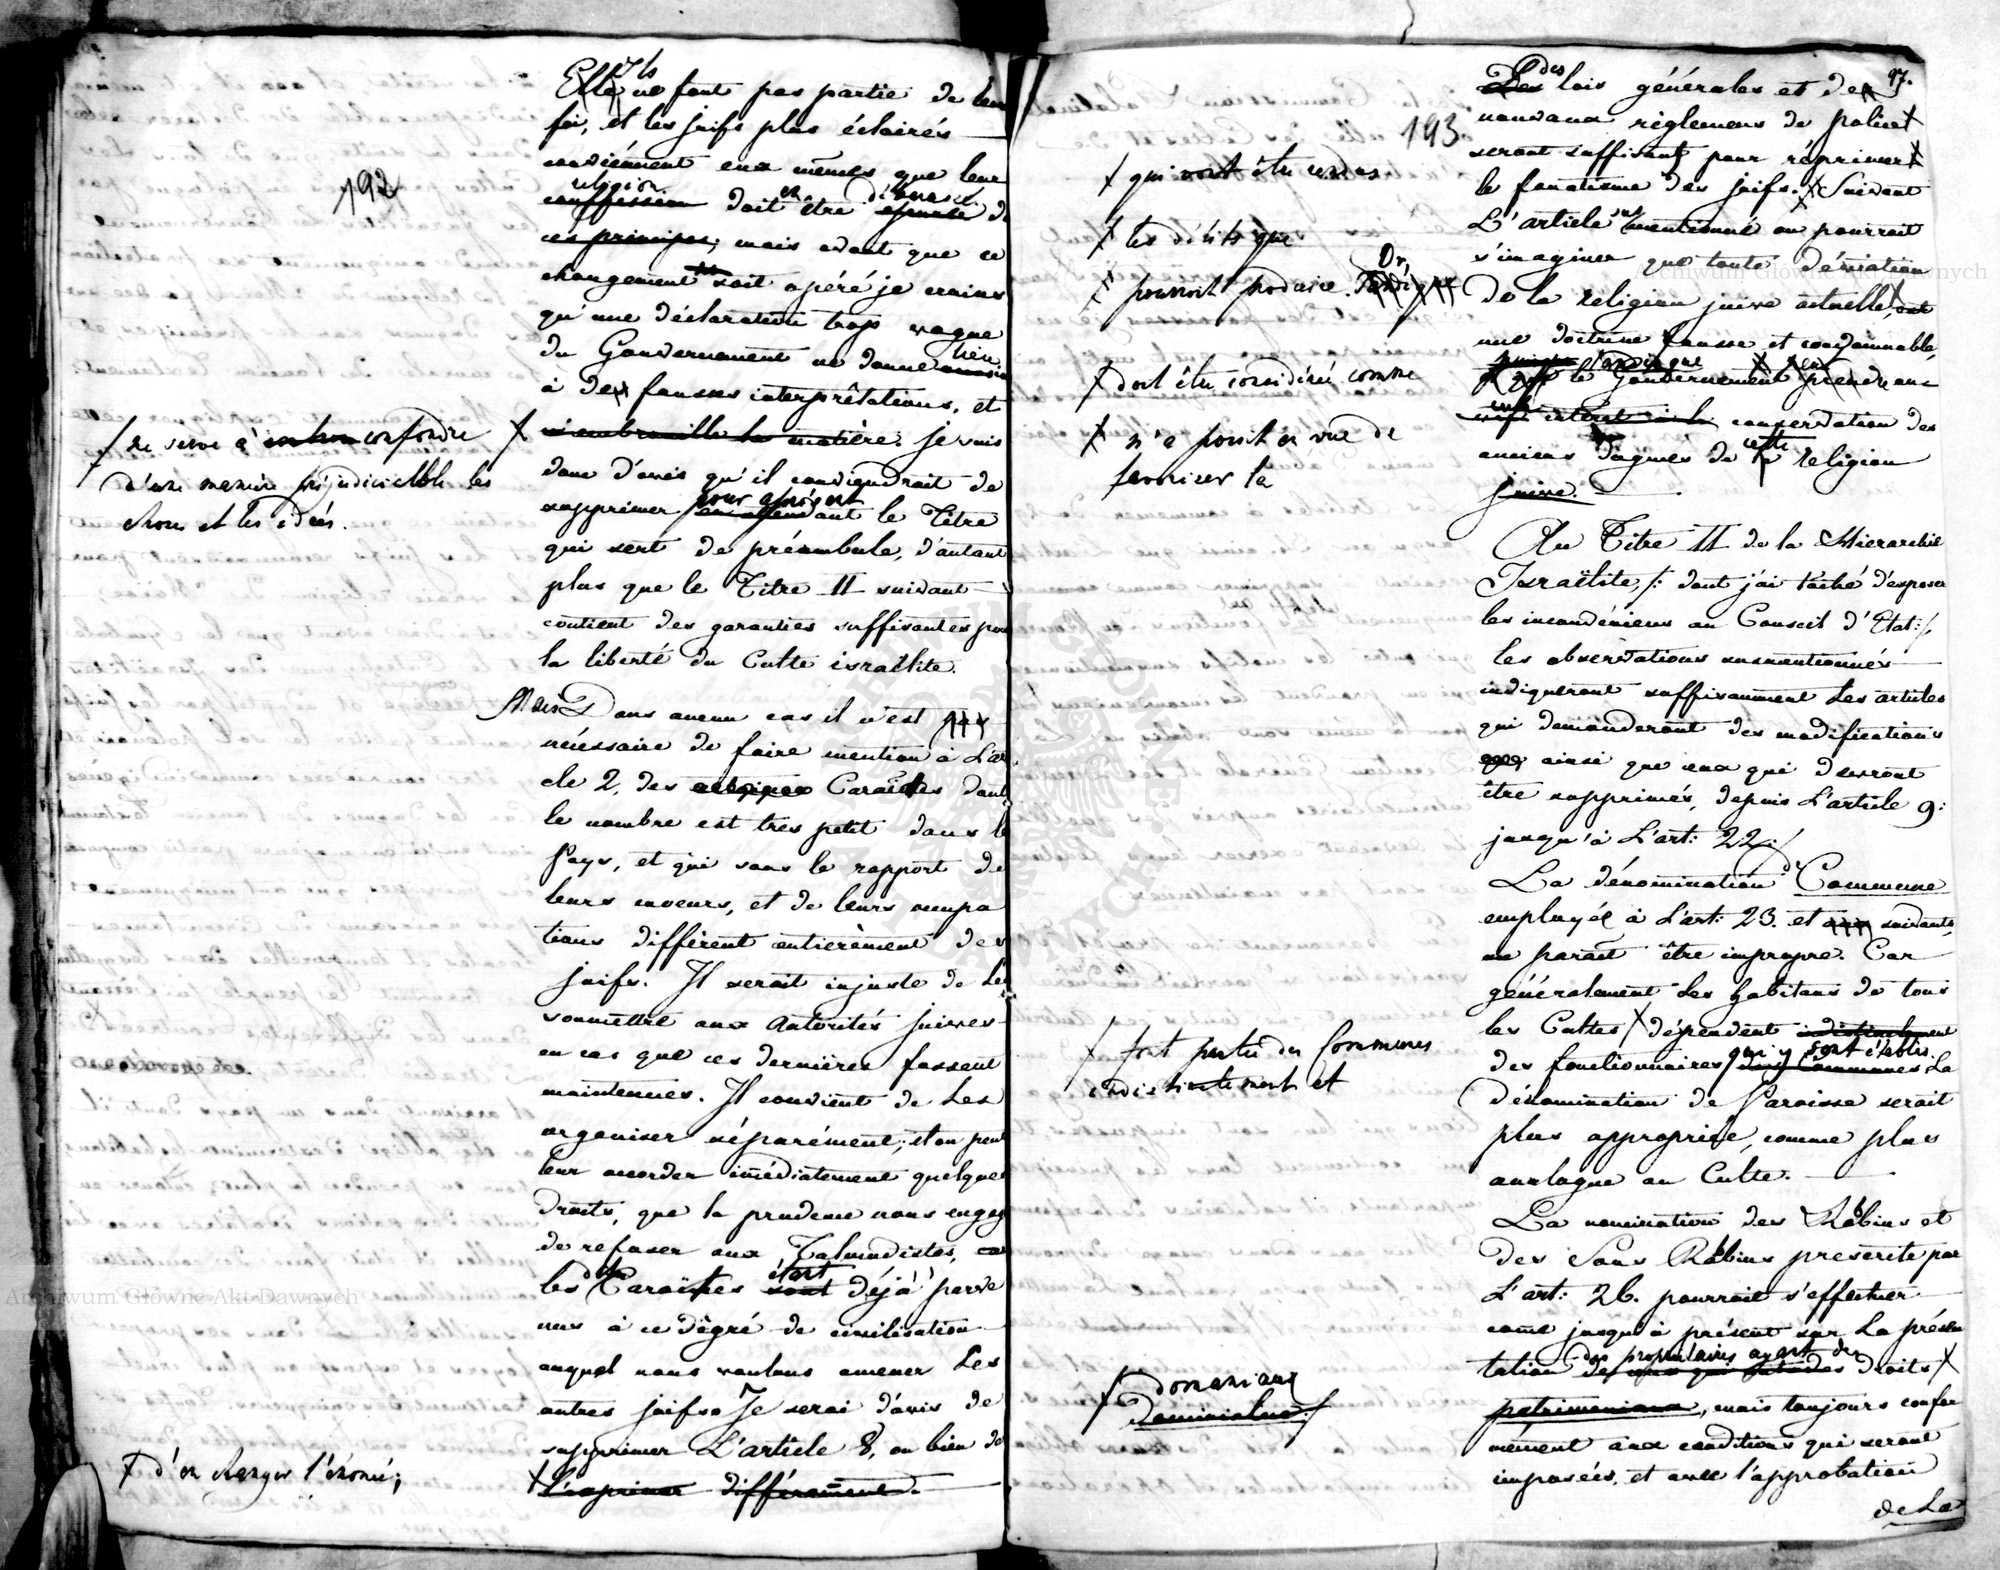 192
Ils
Elle ne font pas partie de leur
foi, et les juifs plus éclairés
conviennent eux mêmes que leur
religion
confession doit en être dégagée
ces principes; mais avant que ce
changement soit opéré je crains
qu'une déclaration trop vague
du Gouvernement ne donne lieu
à de fausses interprétations, et
n'embrouille la matière. je suis
donc d'avis qu'il conviendrait de
supprimer pour à présent le Titre
qui sert de préambule, d'autant
plus que le Titre II suivant
contient des garanties suffisantes pour
la liberté du Culte israëlite.
Mais Dans aucun cas il n'est pas
nécessaire de faire mention à L'arti
cle 2, des Caraïtes dont
le nombre est tres petit dans le
Pays, et qui sous le rapport de
leurs moeurs, et de leurs occupa
tions différent entierèment des
juifs. Il serait injuste de les
soumettre aux Autorités juives
en cas que ces dernières fussent
maintenues. Il convient de les
organiser séparément; et on peut
leur accorder imédiatement quelques
droits, que la prudence nous engage
de refuser aux Talmudistes,
les dits Caraïtes étant sont déjà parve
nus à ce dégré de civilisation
auquel nous voulons amener les
autres juifs. Je serai d'avis de
supprimer L'article 8, ou bien de
L'exprimer différament.
ne serve à confondre
d'une manière préjudiciable les
choses et les idées.
d'en changer l'énoncé;
97.
193
des
Des lois générales et de
nouveaux règlemens de police
seront suffisant pour réprimer
le fanatisme des juifs. Suivant
L'article sus mentionné on pourrait
s'imaginer que toute déviation
de la religion juive actuelle, est
une doctrine fausse et condamnable,
tandis que
le Gouvernement
conservation des
anciens dogmes de cette religion
juive.
Au Titre II de la Hierarchie
Israëlite, /: dont j'ai taché d'exposer
les inconvéniens au Conseil d'Etat :/,
les observations susmentionnés
indiqueront suffisamment les articles
qui demanderont des modifications
ainsi que ceux qui devront
être supprimés, depuis L'article 9:
jusqu'à L'art: 22:/
La dénomination de Commune
employée à L'art: 23. et suivants,
me parait être impropre. Car
généralement les habitans de tous
les Cultes dépendent indistinctement
des fonctionnaires qui y sont établis. La
dénomination de Paroisse serait
plus appropriée, comme plus
analogue au Culte.
La nomination des Rabins et
des Sous Rabins prescrite par
L'art: 26. pourrait s'effectuer
come jusqu'à présent sur La présen
tation des propriétaires ayant des droits
patrimoniaux, mais toujours confor
mément aux conditions qui seront
imposées, et avec l'approbation
de La
qui vont être rendus
les délits que
pourroit produire. Or,
doit être considérée comme
n'a point en vue de
favoriser la
font partie des Communes
indistinctement et
domaniaux